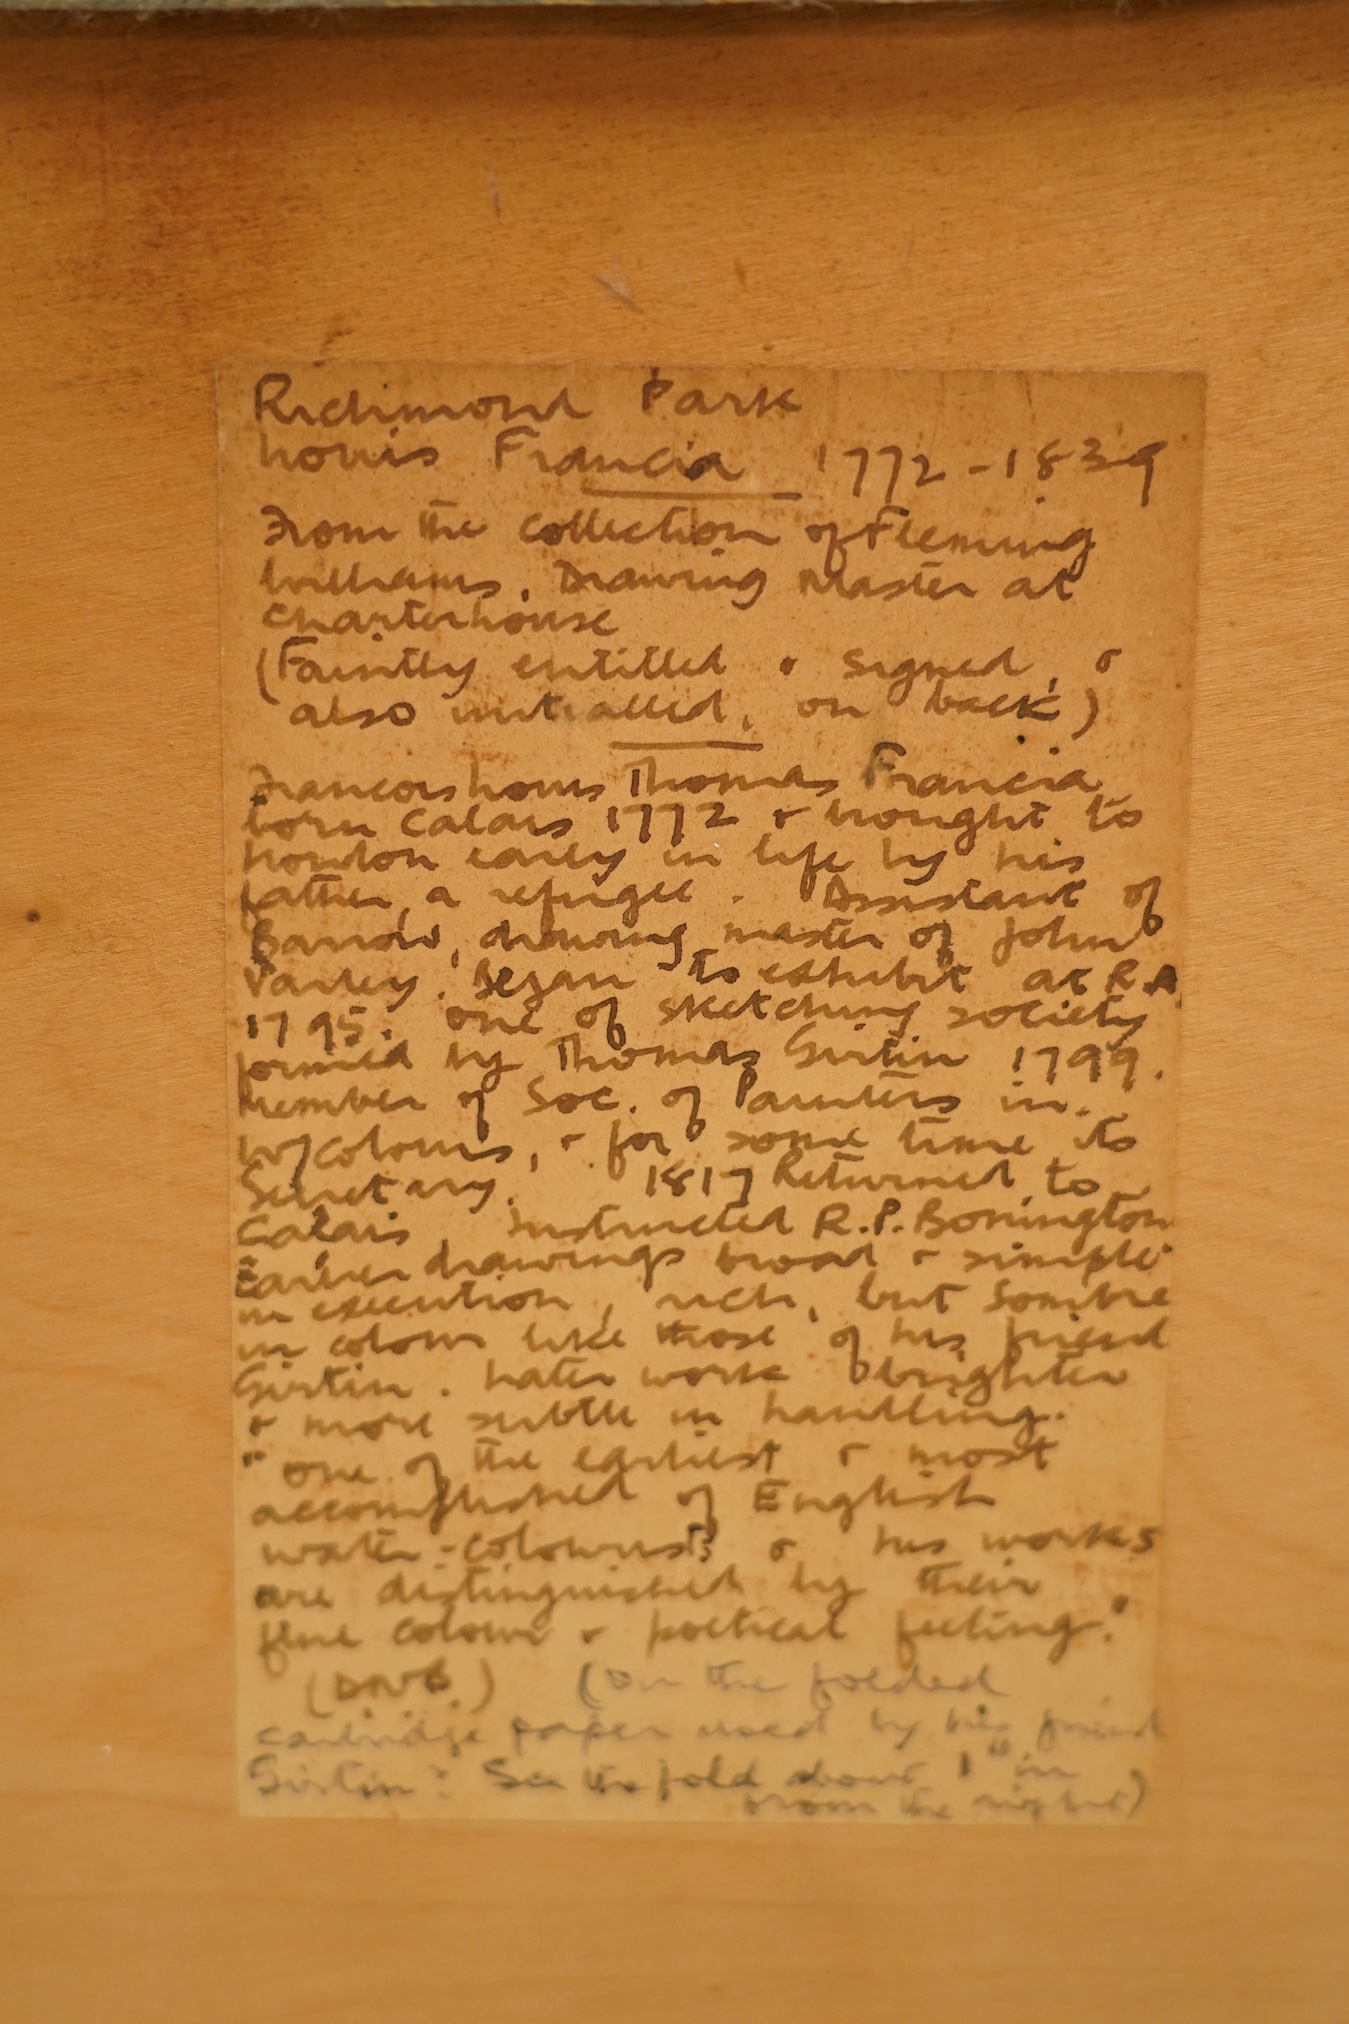 Richmond Park
Louis Francia 1772-1839
From the collection of Fleming
Williams, Drawing Master at
Charterhouse
(Faintly entitled & signed, &
also initialled, on back)
Francois Louis Thomas Francia
born Calais 1772 & brought to
London early in life by his
father, a refugee. Assistant of
Barrow, drawing master of John
Varley. Began to exhibit at R.A.
1795. One of sketching society
formed by Thomas Girtin 1799.
Member of Soc. of Painters in
w/colours, & for some time its
Secretary. 1817 Returned to
Calais Instructed R.P. Bonington
Earlier drawings broad & simple
in execution, rich, but sombre
in colour like those of his friend
Girtin. Later work brighter
& more subtle in handling.
"One of the earliest & most
accomplished of English
water-colourists & his works
are distinguished by their
fine colour & poetical feeling."
(DNB.) (On the folded
cartridge paper used by his friend
Girtin? See the fold about 1" in
from the right)